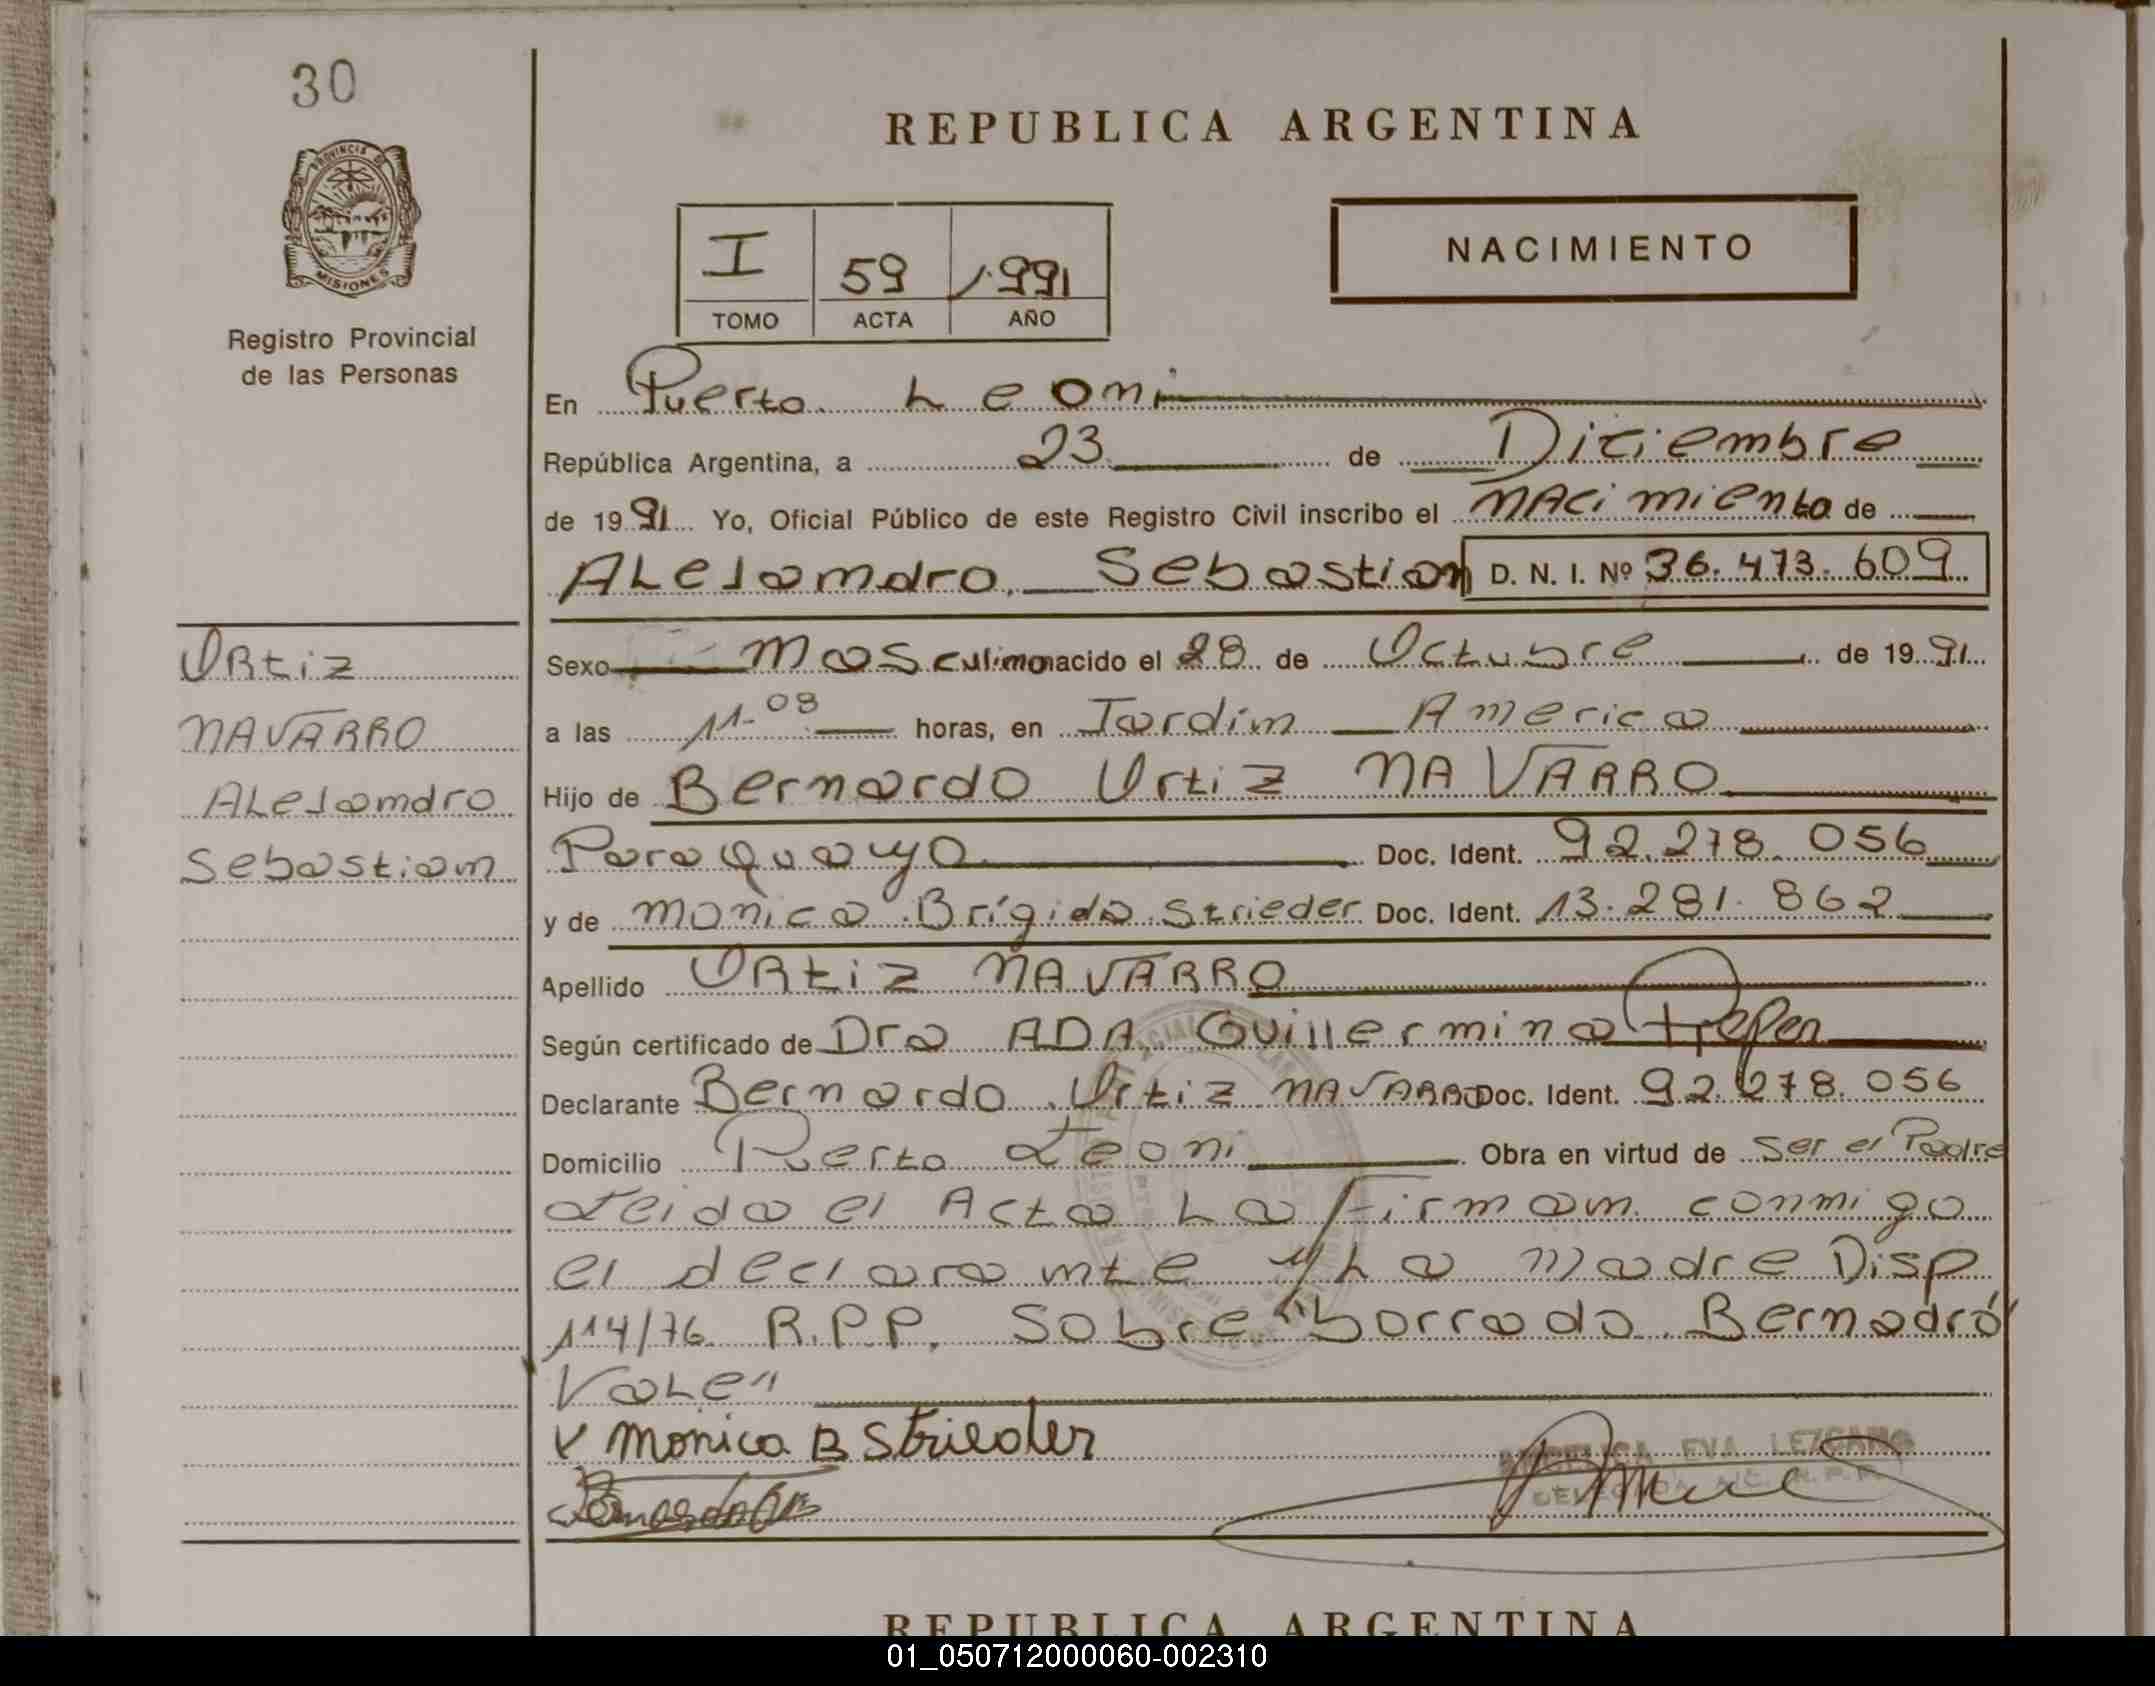 30
PROVINCIA DE
MISIONES
Registro Provincial
de las Personas
REPUBLICA ARGENTINA
I 59 1.991
TOMO ACTA AÑO
NACIMIENTO
En Puerto Leoni
República Argentina, a 23 de Diciembre
de 1991 Yo, Oficial Público de este Registro Civil inscribo el NACimiento de
ALeJandro Sebastian D. N. I. Nº 36.473.609
Sexo Masculino nacido el 28 de Octubre de 1991
a las 11-08 horas, en Jardin America
Hijo de Bernardo Ortiz NAVARRO
Paraguayo Doc. Ident. 92.278.056
y de Monica Brígida Strieder Doc. Ident. 13.281.862
Apellido ORtiz NAVARRO
Según certificado de Dra ADA Guillermina
Declarante Bernardo Ortiz NAVARRO Doc. Ident. 92.278.056
Domicilio Puerto Leoni Obra en virtud de Ser el Padre
Leida el Acta La Firman conmigo
el declarante y La Madre Disp
114/76 R.P.P. Sobre "borrado Bernadró
VaLe"
X Monica B Strieder
EVA LEZCANO
ORtiz
NAVARRO
ALeJandro
Sebastian
REPUBLICA ARGENTINA
01_050712000060-002310